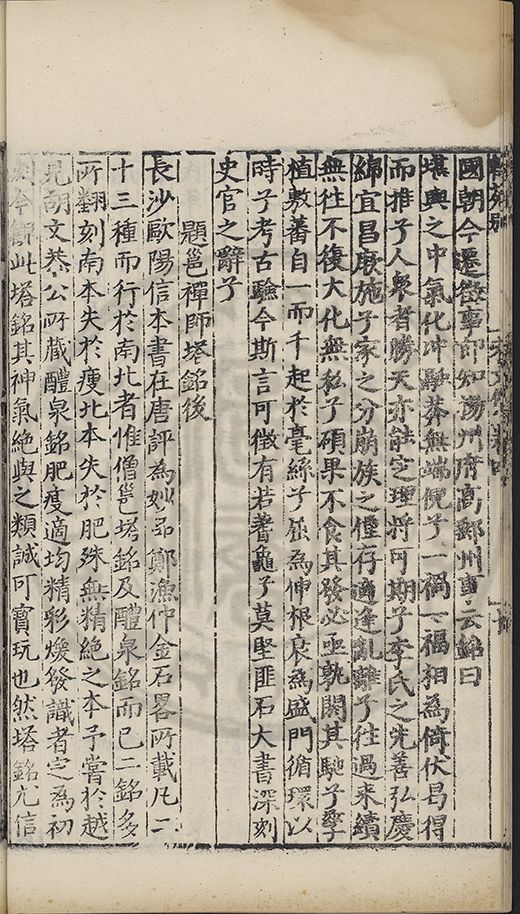 國朝今遷徵事郎知揚州府高郵州事云銘曰
堪輿之中氣化沖融莽無端倪子一禍一福相為倚伏曷得
而推子人衆者勝天亦能定理將可期子李氏之先善弘慶
綿宜昌厥施子家之分崩族之僅存適逢亂離子往過来續
無往不復大化無私子碩果不食其發必亟孰閼其馳子孳
植敷蕃自一而千起於毫絲子屈為伸根衰為盛門循環以
時子考古驗今斯言可徵有若蓍龜子莫堅匪石大書深刻
史官之辭子
題邕禪師塔銘後
長沙歐陽信本書在唐評為妙品鄭漁仲金石畧所載凡二
十三種而行於南北者惟僧邕塔銘及醴泉銘而已二銘多
所翻刻南本失於瘦北本失於肥殊無精絶之本予嘗於越
見胡文恭公所蔵醴泉銘肥瘦適均精彩煥發識者定為初
刻今觀此塔銘其神氣絶與之類誠可寳玩也然塔銘尤信